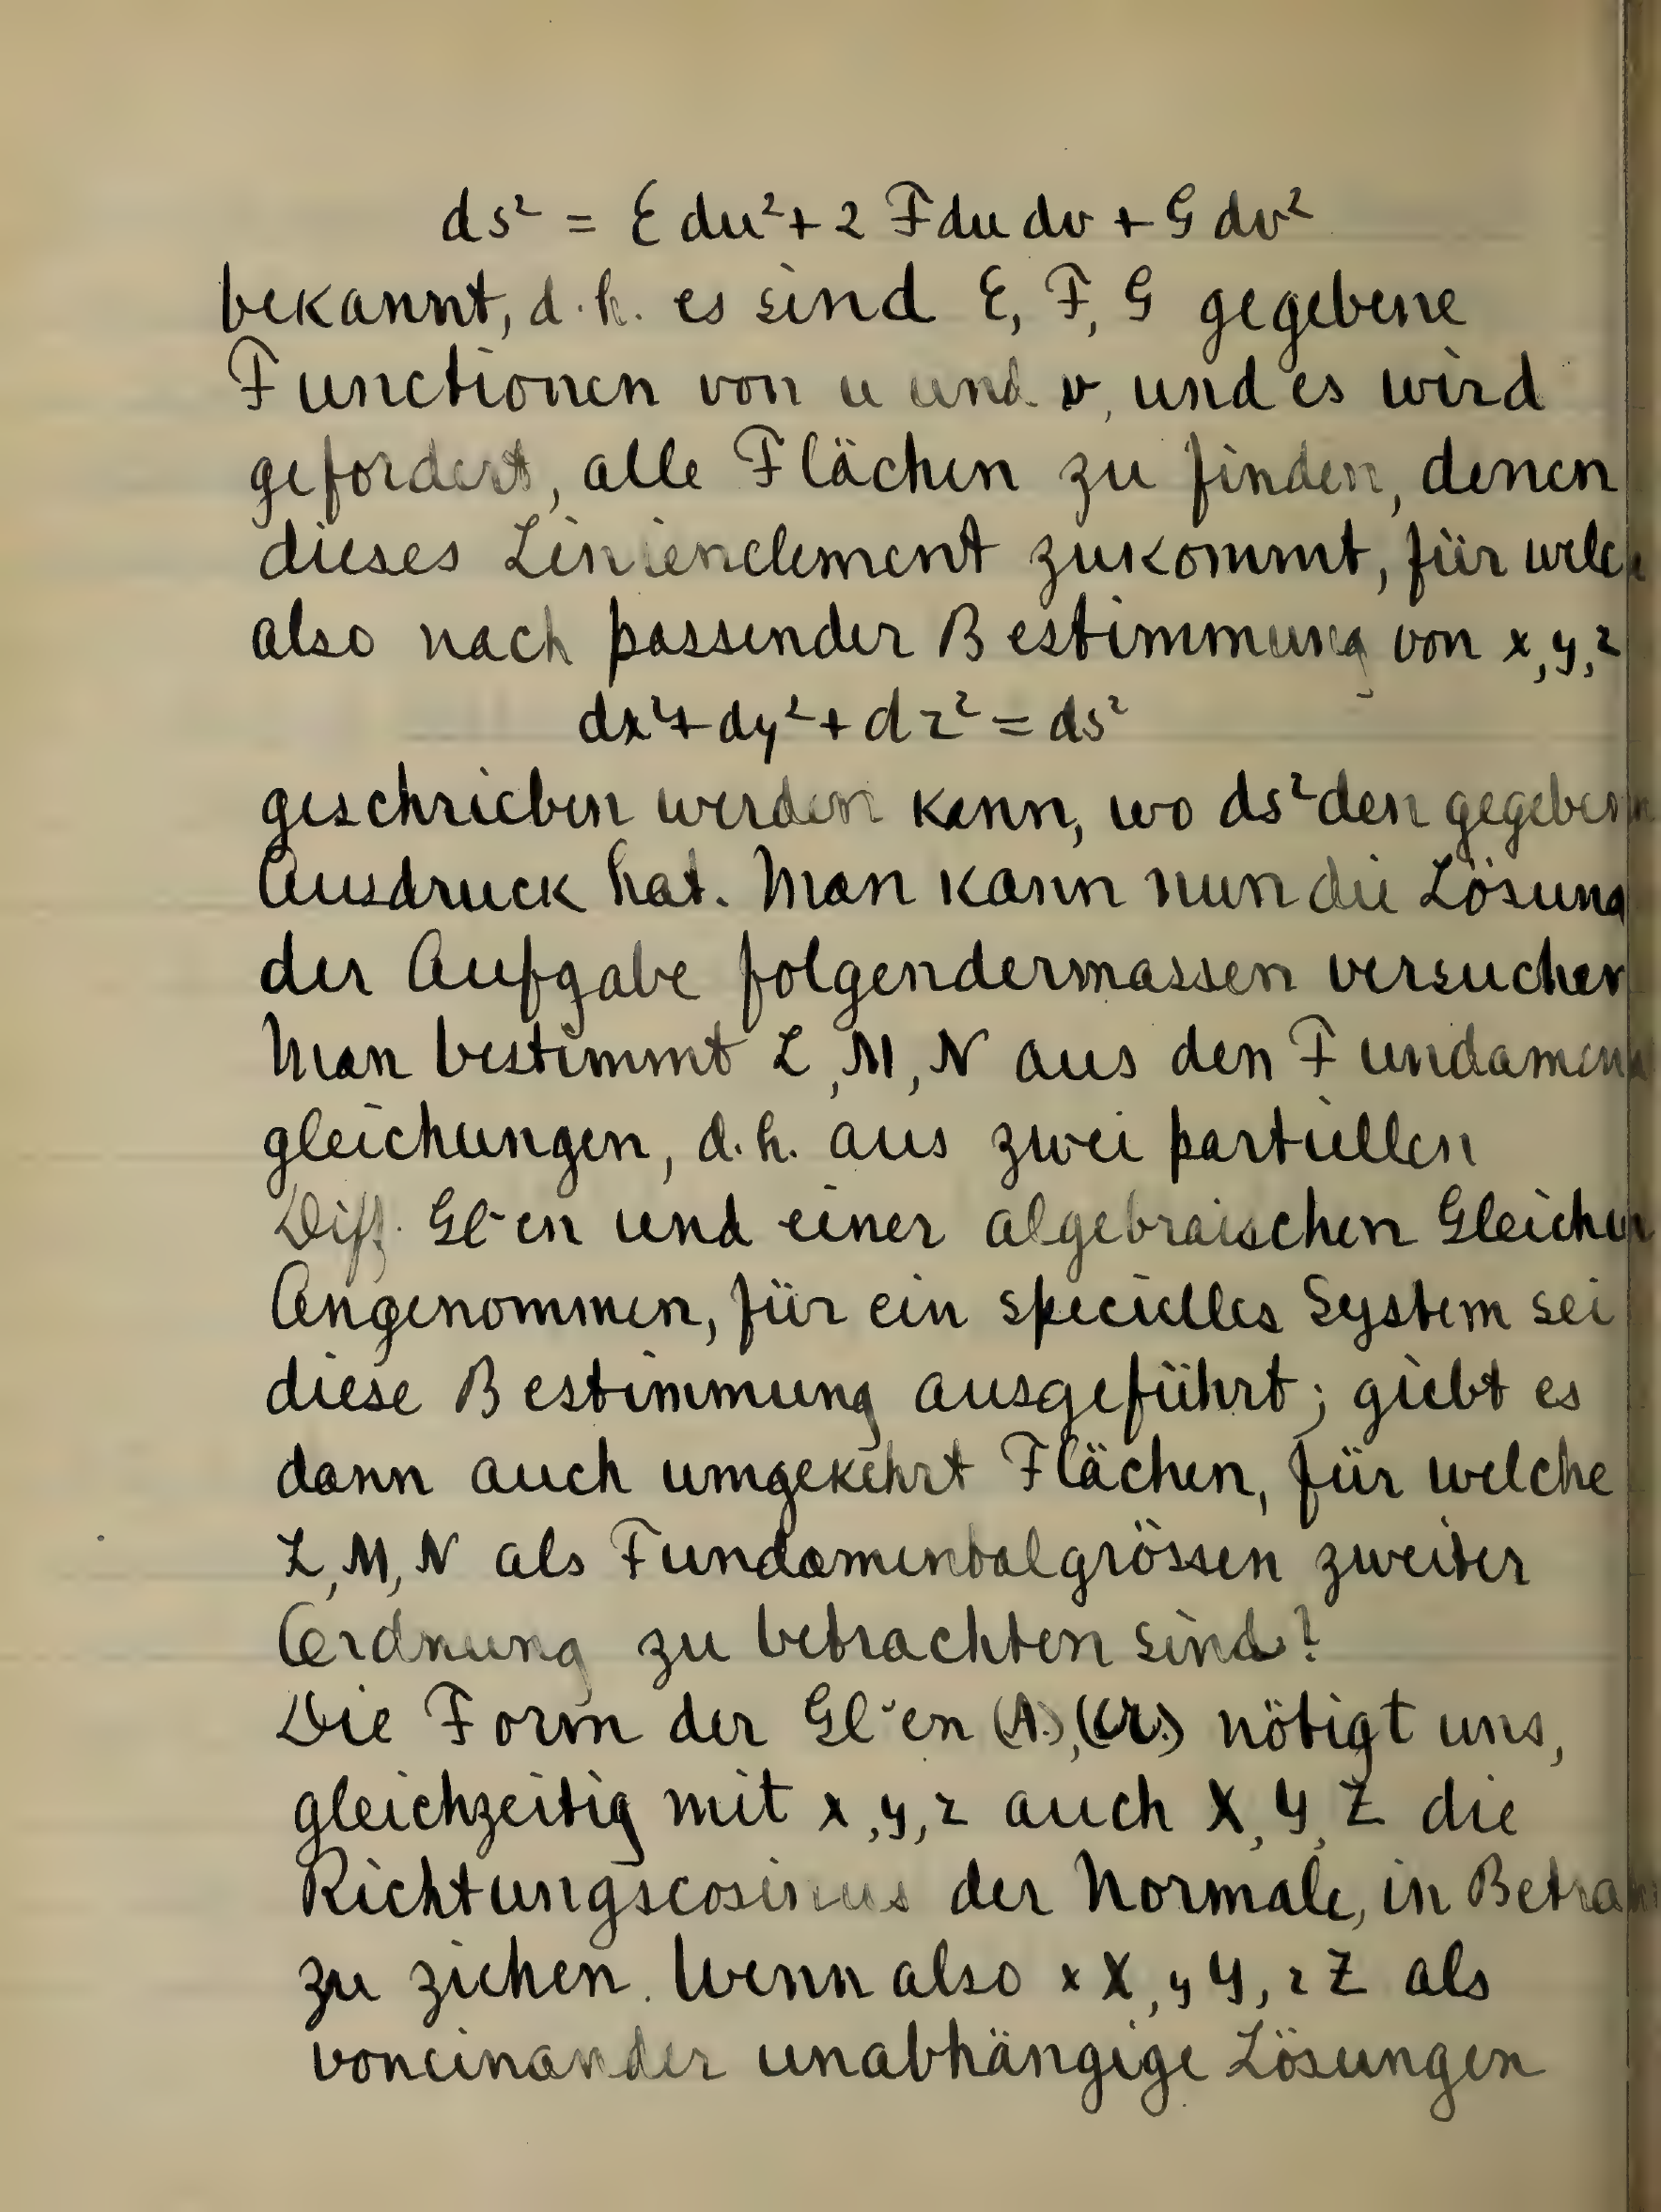 ds² = E du² + 2 F du dv + G dv²
bekannt, d.h. es sind E, F, G gegebene
Functionen von u und v, und es wird
gefordert, alle Flächen zu finden, denen
dieses Linienelement zukommt, für welche
also nach passender Bestimmung von x, y, z
dx² + dy² + dz² = ds²
geschrieben werden kann, wo ds² den gegeben
Ausdruck hat. Man kann nun die Lösung
der Aufgabe folgendermassen versuchen
Man bestimmt L, M, N aus den Fundamen
gleichungen, d.h. aus zwei partiellen
Diff. Gl-en und einer algebraischen Gleichun
Angenommen, für ein specielles System sei
diese Bestimmung ausgeführt; giebt es
dann auch umgekehrt Flächen, für welche
L, M, N als Fundamentalgrössen zweiter
Ordnung zu betrachten sind?
Die Form der Gl-en (A.), nötigt uns,
gleichzeitig mit x, y, z auch X, Y, Z die
Richtungscosinus der Normale, in Betra
zu ziehen. Wenn also x X, y Y, z Z als
voneinander unabhängige Lösungen